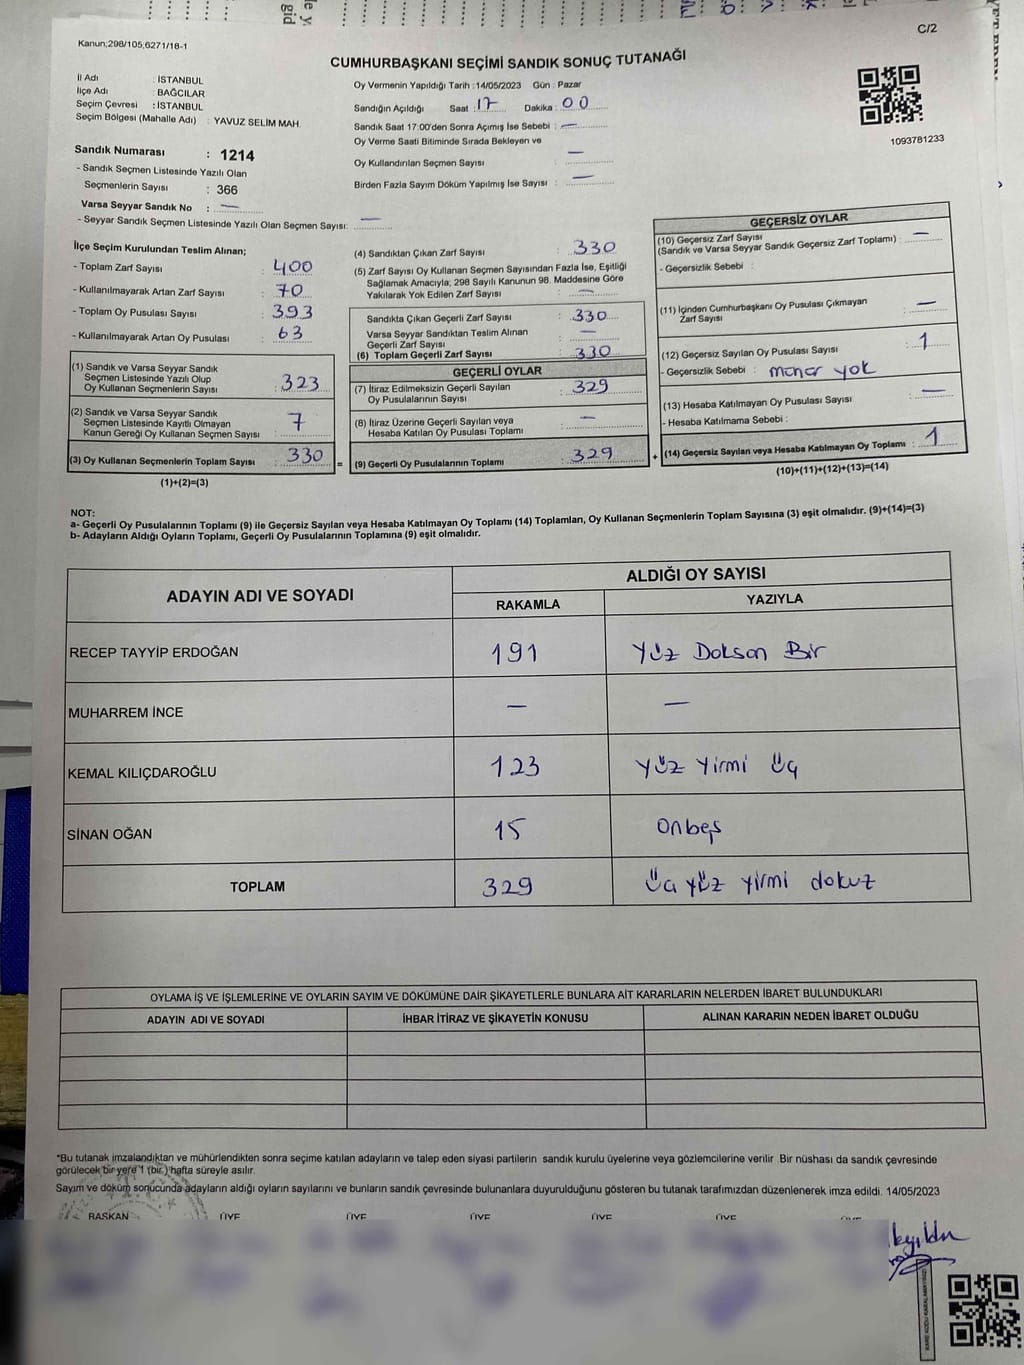 C/2
Kanun;298/105;6271/18-1
CUMHURBAŞKANI SEÇİMİ SANDIK SONUÇ TUTANAĞI
İl Adı : İSTANBUL
İlçe Adı : BAĞCILAR
Seçim Çevresi : İSTANBUL
Seçim Bölgesi (Mahalle Adı) : YAVUZ SELİM MAH.
Sandık Numarası : 1214
- Sandık Seçmen Listesinde Yazılı Olan
Seçmenlerin Sayısı : 366
Varsa Seyyar Sandık No : —
- Seyyar Sandık Seçmen Listesinde Yazılı Olan Seçmen Sayısı: —
Oy Vermenin Yapıldığı Tarih : 14/05/2023 Gün : Pazar
Sandığın Açıldığı Saat : 17 Dakika : 00
Sandık Saat 17:00'den Sonra Açımış İse Sebebi : —
Oy Verme Saati Bitiminde Sırada Bekleyen ve
Oy Kullandırılan Seçmen Sayısı : —
Birden Fazla Sayım Döküm Yapılmış İse Sayısı : —
1093781233
İlçe Seçim Kurulundan Teslim Alınan;
- Toplam Zarf Sayısı : 400
- Kullanılmayarak Artan Zarf Sayısı : 70
- Toplam Oy Pusulası Sayısı : 393
- Kullanılmayarak Artan Oy Pusulası : 63
(1) Sandık ve Varsa Seyyar Sandık
Seçmen Listesinde Yazılı Olup
Oy Kullanan Seçmenlerin Sayısı : 323
(2) Sandık ve Varsa Seyyar Sandık
Seçmen Listesinde Kayıtlı Olmayan
Kanun Gereği Oy Kullanan Seçmen Sayısı : 7
(3) Oy Kullanan Seçmenlerin Toplam Sayısı : 330
(1)+(2)=(3)
(4) Sandıktan Çıkan Zarf Sayısı : 330
(5) Zarf Sayısı Oy Kullanan Seçmen Sayısından Fazla İse, Eşitliği
Sağlamak Amacıyla; 298 Sayılı Kanunun 98. Maddesine Göre
Yakılarak Yok Edilen Zarf Sayısı : —
Sandıkta Çıkan Geçerli Zarf Sayısı : 330
Varsa Seyyar Sandıktan Teslim Alınan
Geçerli Zarf Sayısı : —
(6) Toplam Geçerli Zarf Sayısı : 330
GEÇERLİ OYLAR
(7) İtiraz Edilmeksizin Geçerli Sayılan
Oy Pusulalarının Sayısı : 329
(8) İtiraz Üzerine Geçerli Sayılan veya
Hesaba Katılan Oy Pusulası Toplamı : —
= (9) Geçerli Oy Pusulalarının Toplamı : 329
GEÇERSİZ OYLAR
(10) Geçersiz Zarf Sayısı
(Sandık ve Varsa Seyyar Sandık Geçersiz Zarf Toplamı) : —
- Geçersizlik Sebebi :
(11) İçinden Cumhurbaşkanı Oy Pusulası Çıkmayan
Zarf Sayısı : —
(12) Geçersiz Sayılan Oy Pusulası Sayısı : 1
- Geçersizlik Sebebi : mühür yok
(13) Hesaba Katılmayan Oy Pusulası Sayısı : —
- Hesaba Katılmama Sebebi :
+ (14) Geçersiz Sayılan veya Hesaba Katılmayan Oy Toplamı : 1
(10)+(11)+(12)+(13)=(14)
NOT:
a- Geçerli Oy Pusulalarının Toplamı (9) ile Geçersiz Sayılan veya Hesaba Katılmayan Oy Toplamı (14) Toplamları, Oy Kullanan Seçmenlerin Toplam Sayısına (3) eşit olmalıdır. (9)+(14)=(3)
b- Adayların Aldığı Oyların Toplamı, Geçerli Oy Pusulalarının Toplamına (9) eşit olmalıdır.
ADAYIN ADI VE SOYADI ALDIĞI OY SAYISI
RAKAMLA YAZIYLA
RECEP TAYYİP ERDOĞAN 191 Yüz Doksan Bir
MUHARREM İNCE — —
KEMAL KILIÇDAROĞLU 123 Yüz Yirmi Üç
SİNAN OĞAN 15 Onbeş
TOPLAM 329 Üç yüz yirmi dokuz
OYLAMA İŞ VE İŞLEMLERİNE VE OYLARIN SAYIM VE DÖKÜMÜNE DAİR ŞİKAYETLERLE BUNLARA AİT KARARLARIN NELERDEN İBARET BULUNDUKLARI
ADAYIN ADI VE SOYADI İHBAR İTİRAZ VE ŞİKAYETİN KONUSU ALINAN KARARIN NEDEN İBARET OLDUĞU
*Bu tutanak imzalandıktan ve mühürlendikten sonra seçime katılan adayların ve talep eden siyasi partilerin sandık kurulu üyelerine veya gözlemcilerine verilir. Bir nüshası da sandık çevresinde
görülecek bir yere 1 (bir) hafta süreyle asılır.
Sayım ve döküm sonucunda adayların aldığı oyların sayılarını ve bunların sandık çevresinde bulunanlara duyurulduğunu gösteren bu tutanak tarafımızdan düzenlenerek imza edildi. 14/05/2023
BAŞKAN ÜYE ÜYE ÜYE ÜYE ÜYE ÜYE